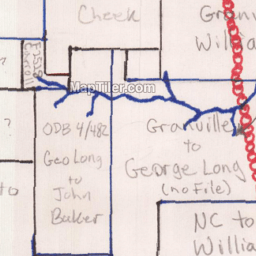 Cheek
Granv
Willia
MapTiler.com
?
ODB 4/482
Geo Long
to
John
Baker
Granville
to
George Long
(no File)
to
NC to
Willia